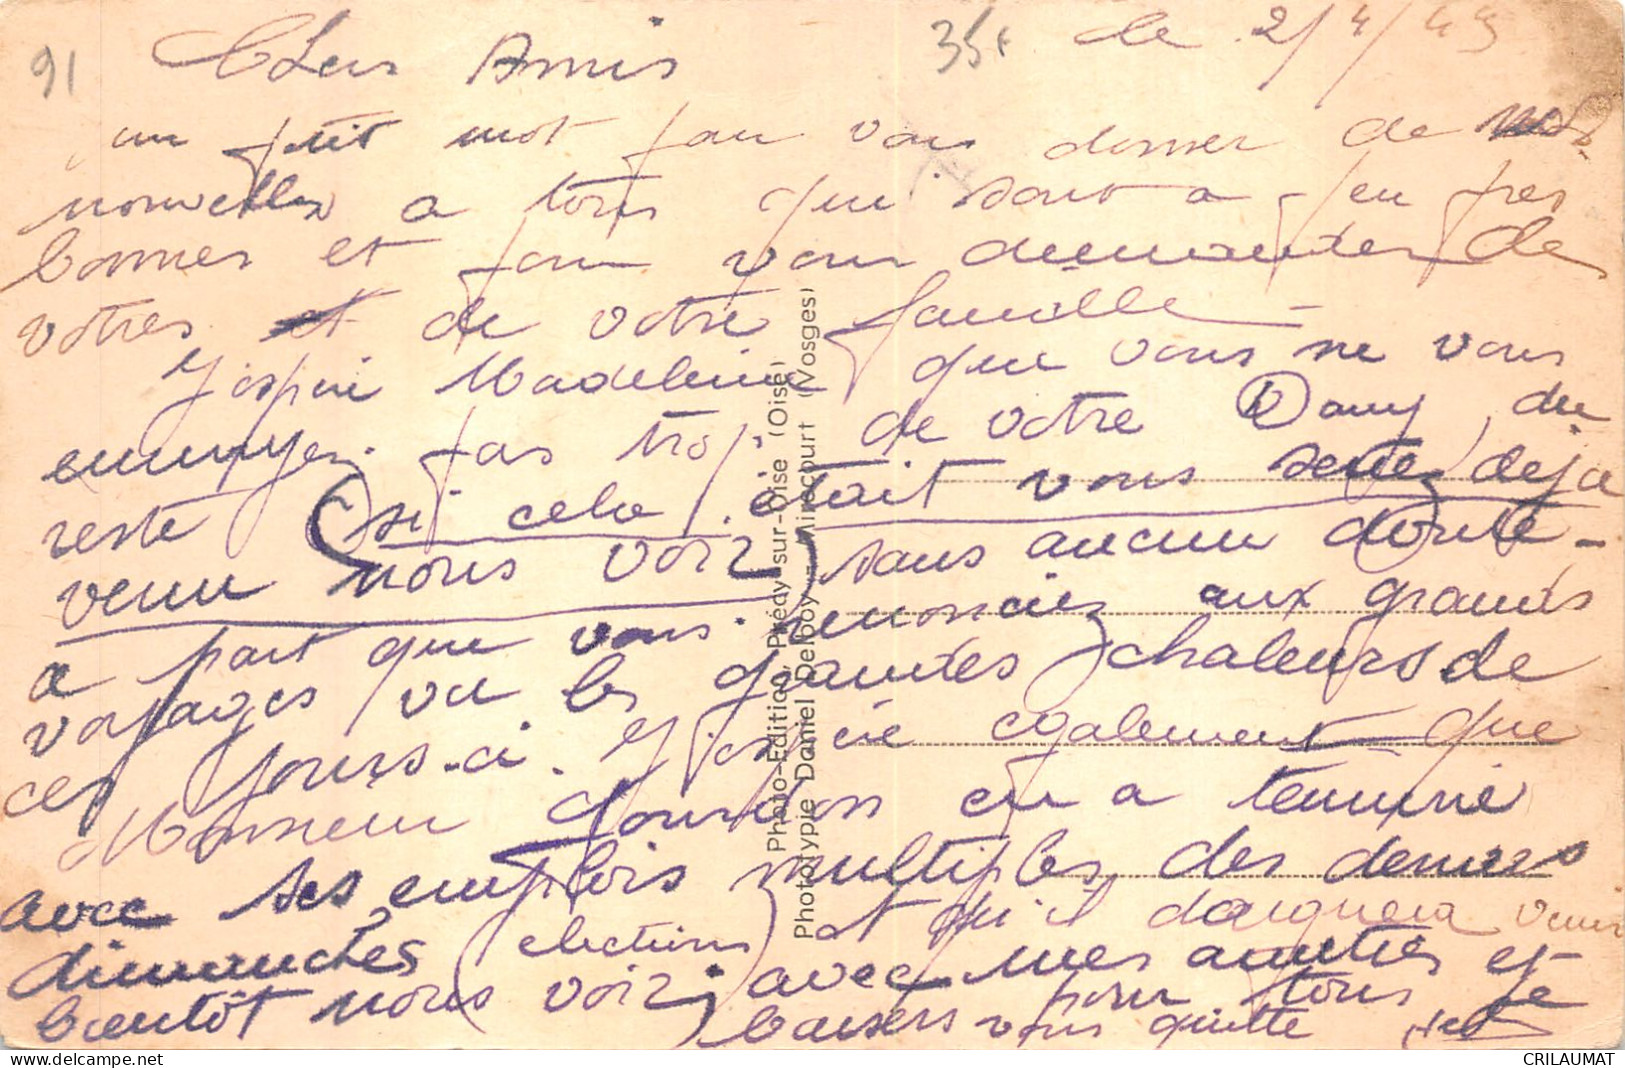 91
35f
le 2/4/49
Chers Amis
un petit mot pour vous donner de nos
nouvelles a tous qui sont a peu pres
bonnes et pour vous demander de
votres et de votre famille -
J'espère Madeleine que vous ne vous
ennuyez pas trop de votre Dany, du
reste (si cela était vous seriez déja
venu nous voir) sans aucun doute -
a part que vous renonciez aux grands
voyages vu les grandes chaleurs de
ces jours-ci. J'espère également que
Monsieur Gourdon en a terminé
avec ses emplois multiples des derniers
dimanches (elections) et qu'il daignera venir
bientôt nous voir, avec mes amitiés et
baisers pour tous je
vous quitte
Photo-Edition, Prédy-sur-Oise (Oise)
Phototypie Daniel Delboy - Mirecourt (Vosges)
CRILAUMAT